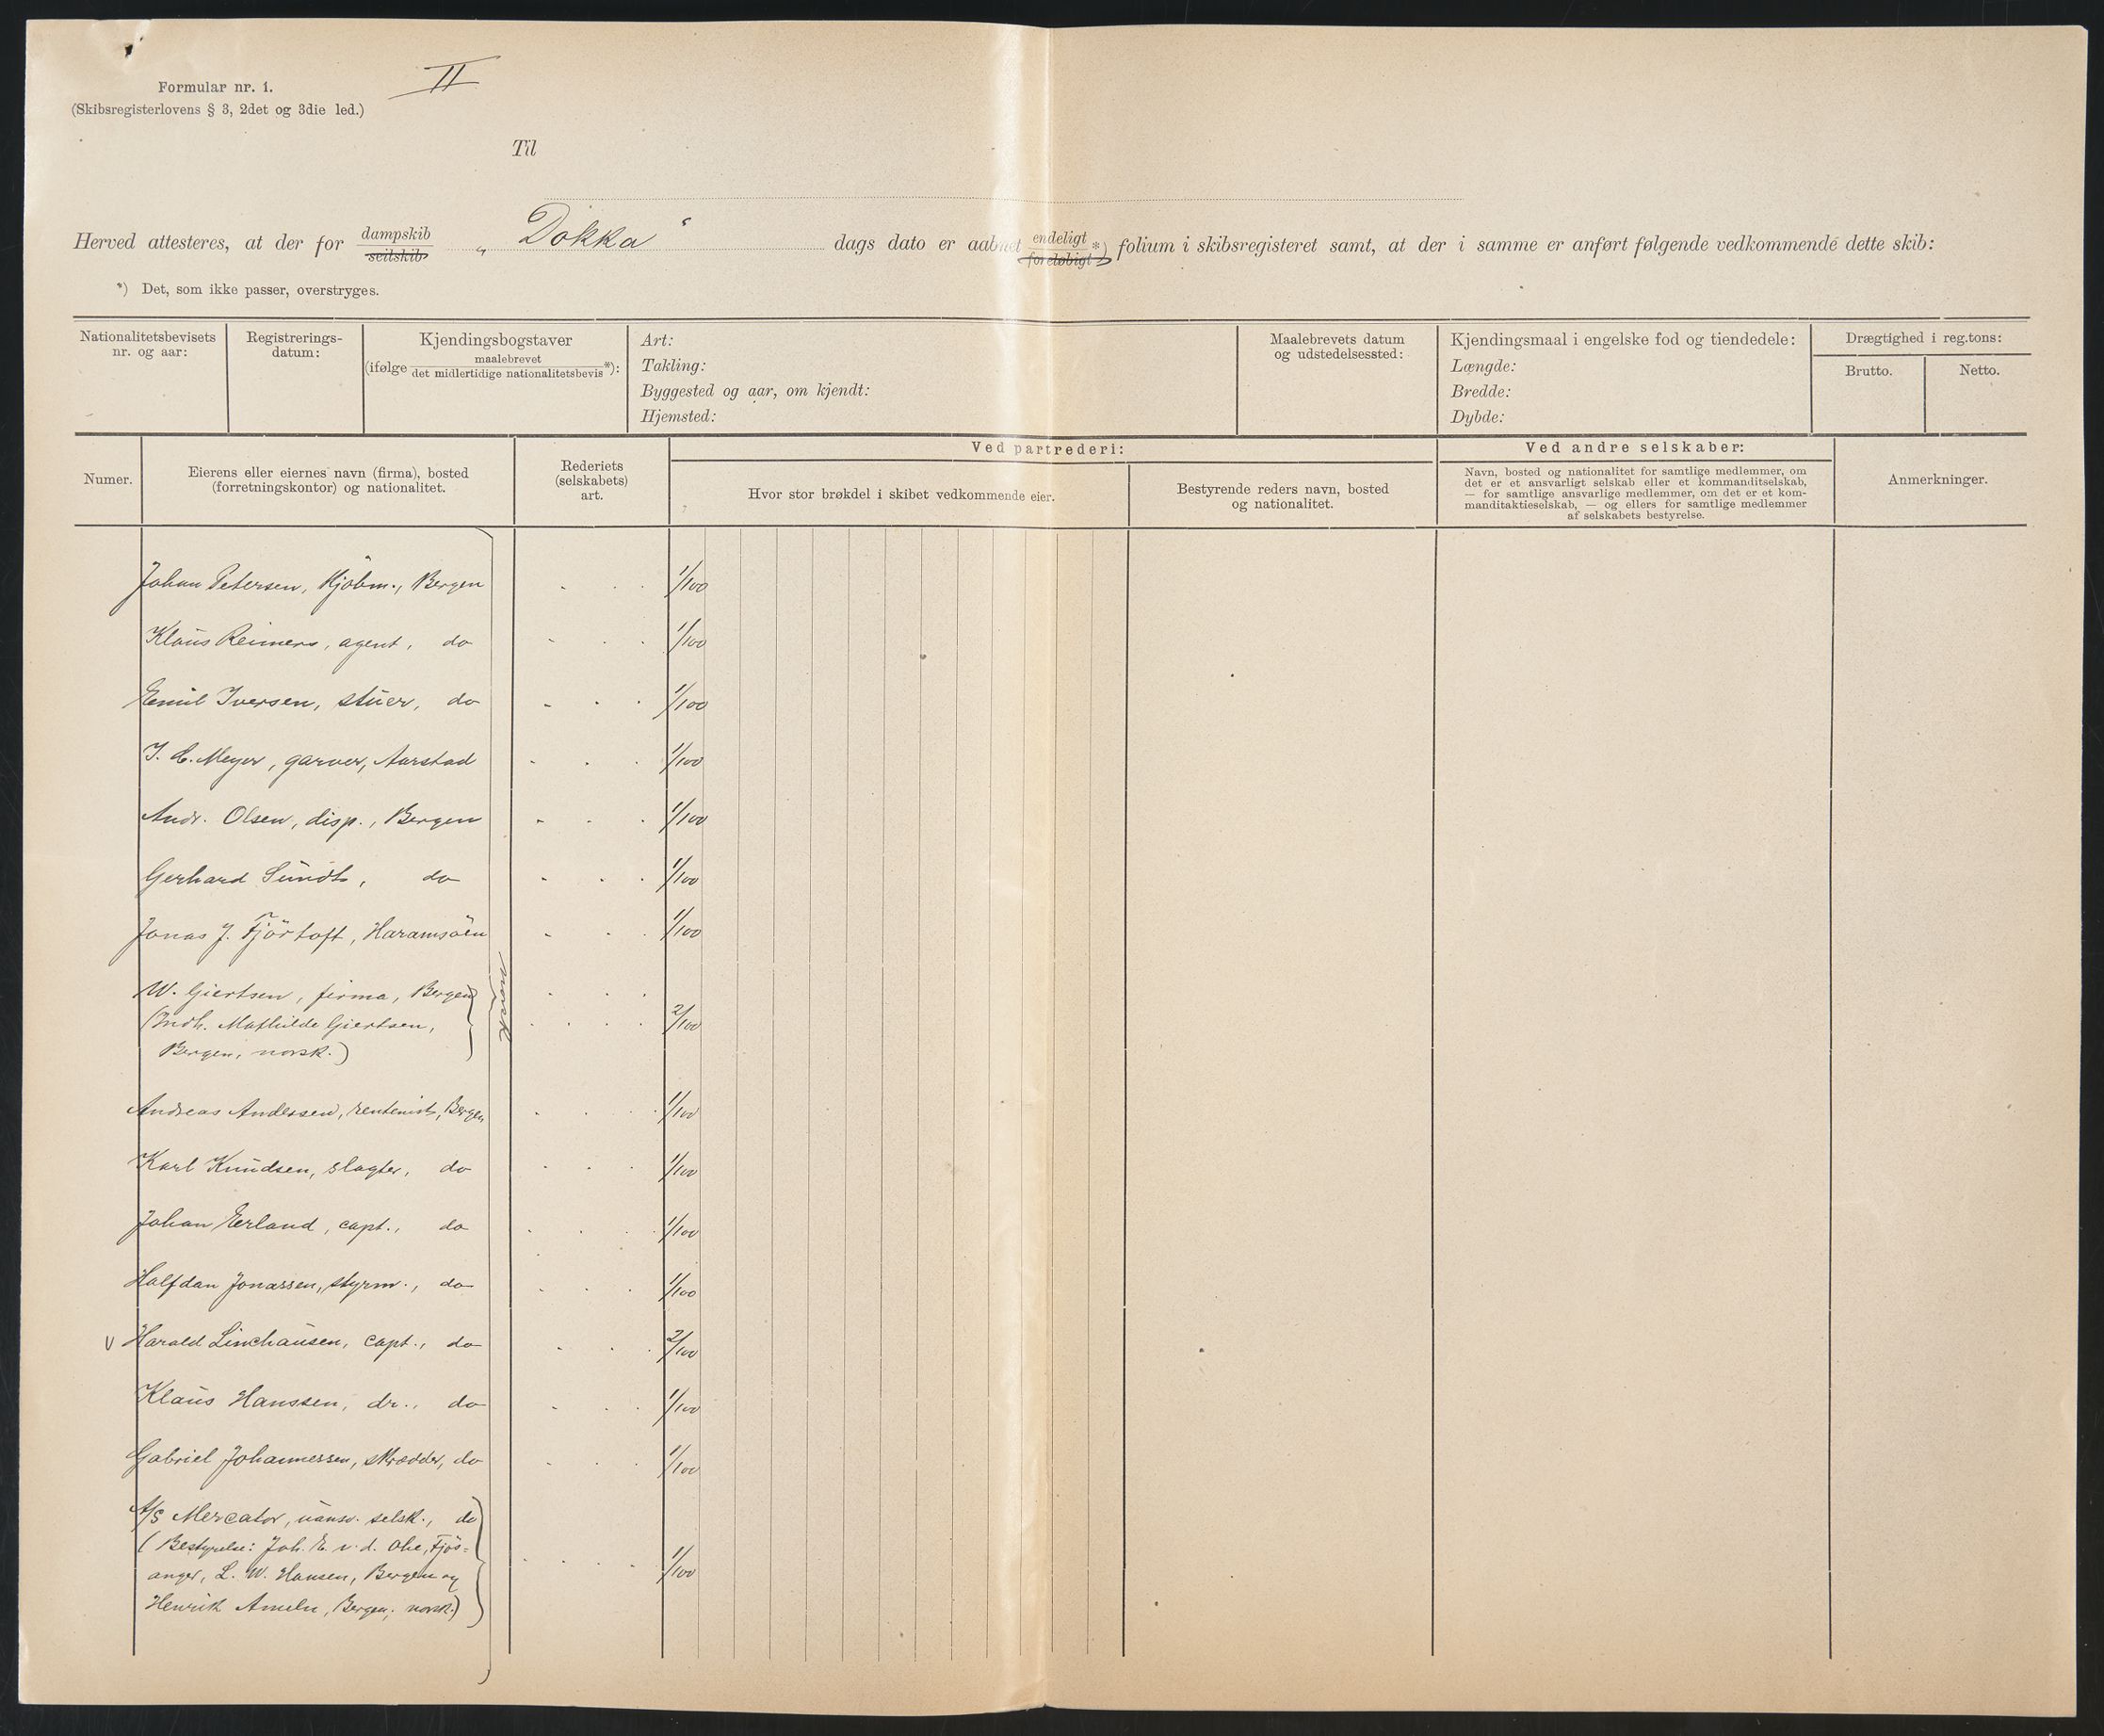 Formular nr. 1.
(Skibsregisterlovens § 3, 2det og 3die led.)
II
Til
Herved attesteres, at der for dampskib seilskib „Dokka“ dags dato er aabnet endeligt foreløbigt *) folium i skibsregisteret samt, at der i samme er anført følgende vedkommende dette skib:
*) Det, som ikke passer, overstryges.
Nationalitetsbevisets
nr. og aar:
Registrerings-
datum:
Kjendingsbogstaver
(ifølge maalebrevet det midlertidige nationalitetsbevis *):
Art:
Takling:
Byggested og aar, om kjendt:
Hjemsted:
Maalebrevets datum
og udstedelsessted:
Kjendingsmaal i engelske fod og tiendedele:
Længde:
Bredde:
Dybde:
Drægtighed i reg.tons:
Brutto.
Netto.
Numer.
Eierens eller eiernes navn (firma), bosted
(forretningskontor) og nationalitet.
Rederiets
(selskabets)
art.
Ved partrederi:
Hvor stor brøkdel i skibet vedkommende eier.
Bestyrende reders navn, bosted
og nationalitet.
Ved andre selskaber:
Navn, bosted og nationalitet for samtlige medlemmer, om
det er et ansvarligt selskab eller et kommanditselskab,
— for samtlige ansvarlige medlemmer, om det er et kom-
manditaktieselskab, — og ellers for samtlige medlemmer
af selskabets bestyrelse.
Anmerkninger.
Johan Petersen, Kjöbm., Bergen 1/100
Klaus Reimers, agent, do 1/100
Emil Iversen, stuer, do 1/100
J. C. Meyer, garver, Aarstad 1/100
Andr. Olsen, disp., Bergen 1/100
Gerhard Sundt, do 1/100
Jonas J. Fjörtoft, Haramsöen 1/100
W. Giertsen, firma, Bergen
(Indh. Mathilde Giertsen, 2/100
Bergen, norsk.)
norsk
Andreas Andersen, rentenist, Bergen 1/100
Karl Knudsen, slagter, do 1/100
Johan Erland, capt., do 1/100
Halfdan Jonassen, styrm., do 1/100
v Harald Linchausen, capt., do 2/100
Klaus Hanssen, dr., do 1/100
Gabriel Johannessen, skrædder, do 1/100
A/S Mercator, uansv. selsk., do
(Bestyrelse: Joh. E. v. d. Ohe, Fjös=
anger, L. W. Hansen, Bergen og 1/100
Henrik Ameln, Bergen; norsk.)